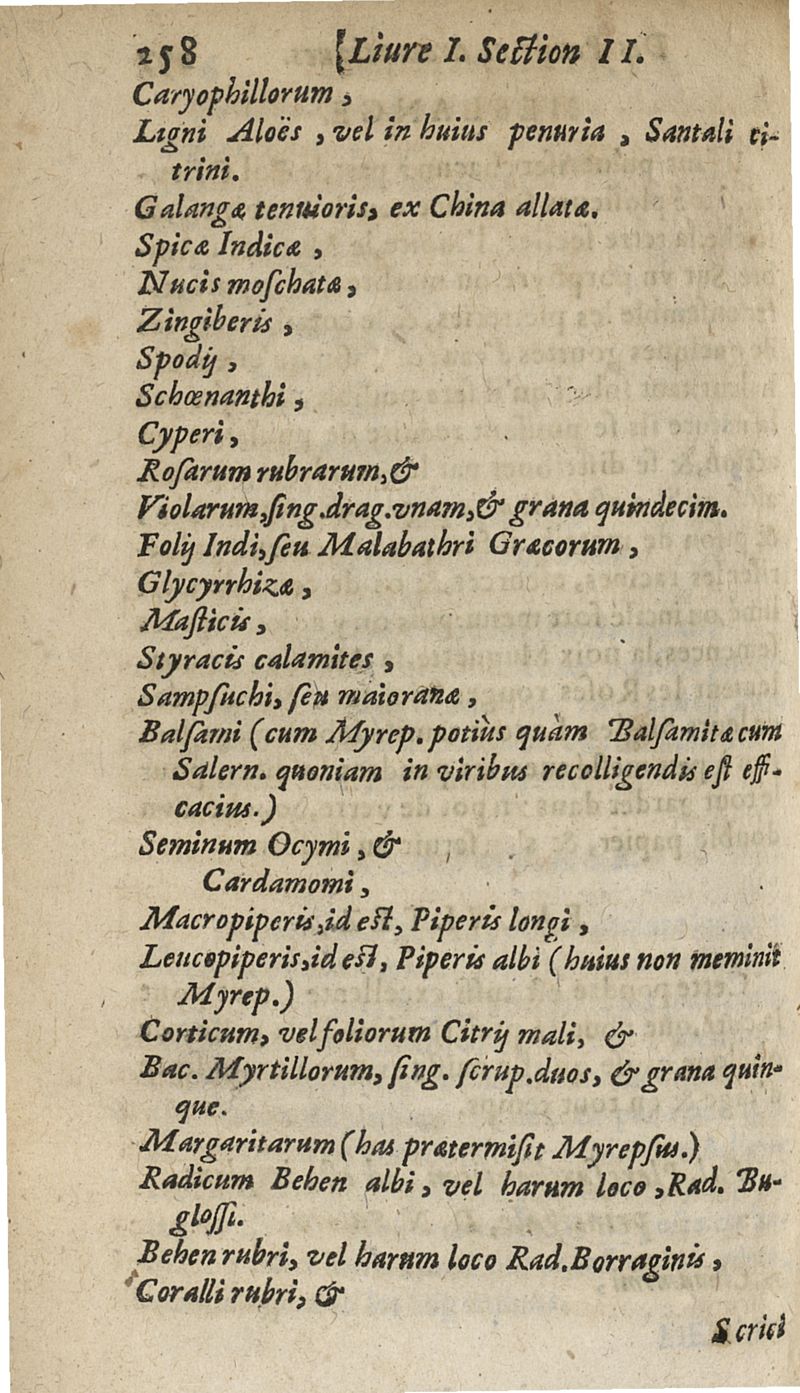 258 [Liure I. Section II.
Caryophillorum,
Ligni Aloës, vel in huius penuria, Santali ci-
trini.
Galangæ tenuioris, ex China allatæ.
Spicæ Indicæ,
Nucis moſchatæ,
Zingiberis,
Spodij,
Schœnanthi,
Cyperi,
Roſarum rubrarum, &
Violarum, ſing. drag. vnam, & grana quindecim.
Folij Indi, ſeu Malabathri Græcorum,
Glycyrrhizæ,
Maſticis,
Styracis calamites,
Sampſuchi, ſeu maioranæ,
Balſami (cum Myrep. potiùs quàm Balſamitæ cum
Salern. quoniam in viribus recolligendis eſt effi-
cacius.)
Seminum Ocymi, &
Cardamomi,
Macropiperis, id est, Piperis longi,
Leucopiperis, id est, Piperis albi (huius non meminit
Myrep.)
Corticum, vel foliorum Citrij mali, &
Bac. Myrtillorum, ſing. ſcrup. duos, & grana quin-
que.
Margaritarum (has prætermiſit Myrepſus.)
Radicum Behen albi, vel harum loco, Rad. Bu-
gloſſi.
Behen rubri, vel harum loco Rad. Borraginis,
Coralli rubri, &
Scrici